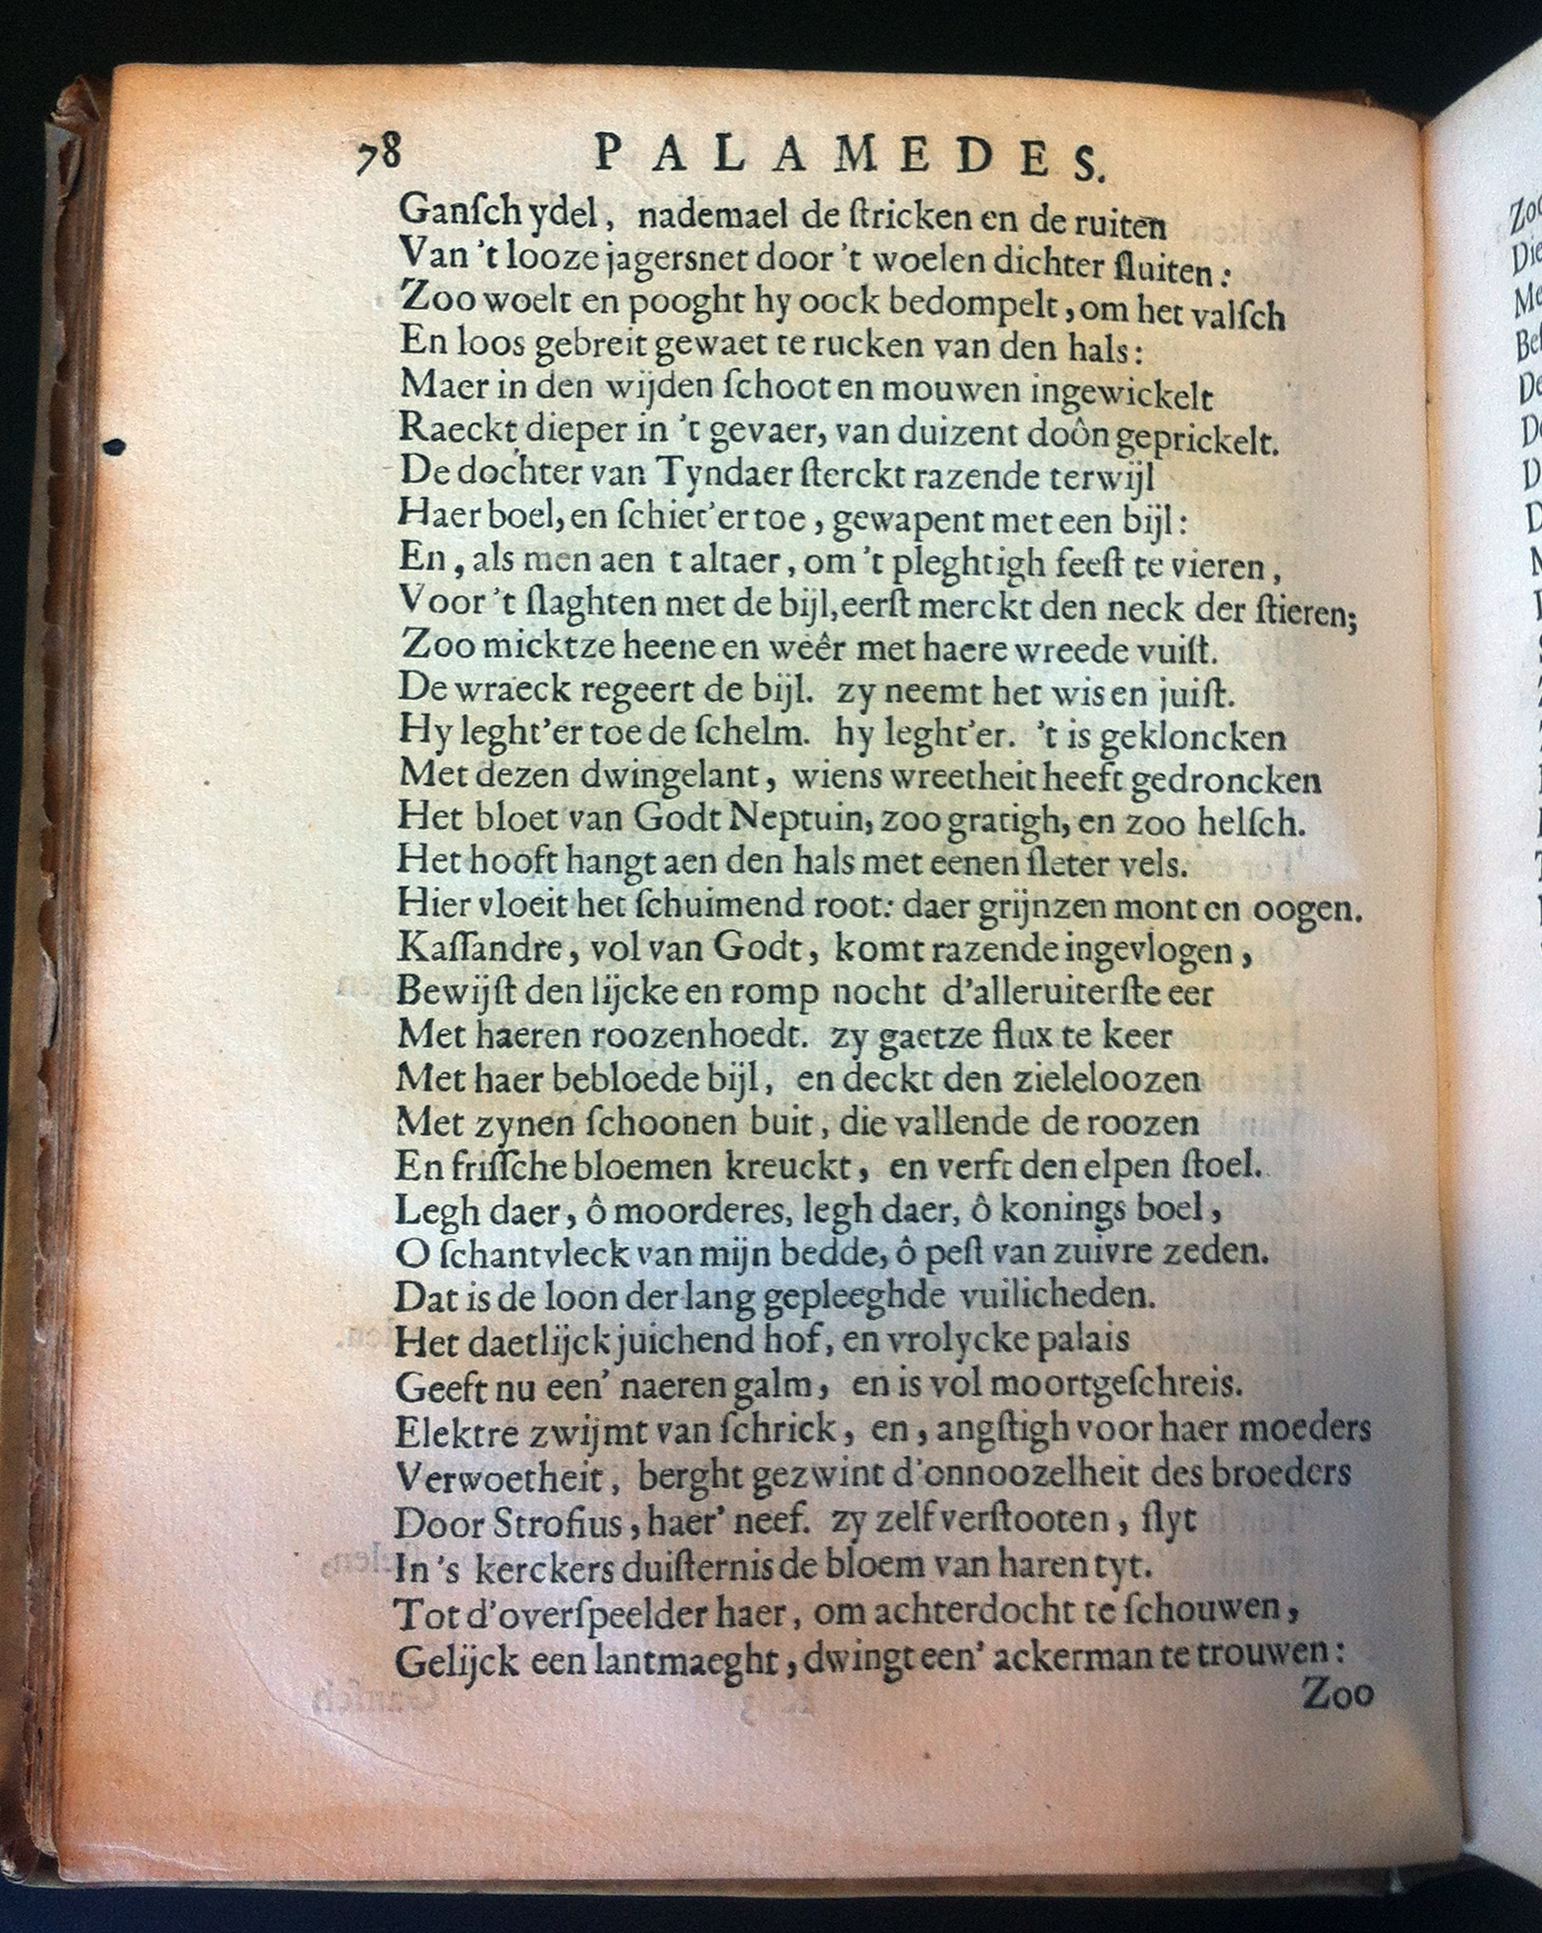 78 PALAMEDES.
Ganſch ydel, nademael de ſtricken en de ruiten
Van 't looze jagersnet door 't woelen dichter ſluiten:
Zoo woelt en pooght hy oock bedompelt, om het valſch
En loos gebreit gewaet te rucken van den hals:
Maer in den wijden ſchoot en mouwen ingewickelt
Raeckt dieper in 't gevaer, van duizent doôn geprickelt.
De dochter van Tyndaer ſterckt razende terwijl
Haer boel, en ſchiet'er toe, gewapent met een bijl:
En, als men aen t altaer, om 't pleghtigh feeſt te vieren,
Voor 't ſlaghten met de bijl, eerſt merckt den neck der ſtieren;
Zoo micktze heene en weêr met haere wreede vuiſt.
De wraeck regeert de bijl. zy neemt het wis en juiſt.
Hy leght'er toe de ſchelm. hy leght'er. 't is gekloncken
Met dezen dwingelant, wiens wreetheit heeft gedroncken
Het bloet van Godt Neptuin, zoo gratigh, en zoo helſch.
Het hooft hangt aen den hals met eenen ſleter vels.
Hier vloeit het ſchuimend root: daer grijnzen mont en oogen.
Kaſſandre, vol van Godt, komt razende ingevlogen,
Bewijſt den lijcke en romp nocht d'alleruiterſte eer
Met haeren roozenhoedt. zy gaetze flux te keer
Met haer bebloede bijl, en deckt den zieleloozen
Met zynen ſchoonen buit, die vallende de roozen
En friſſche bloemen kreuckt, en verft den elpen ſtoel.
Legh daer, ô moorderes, legh daer, ô konings boel,
O ſchantvleck van mijn bedde, ô peſt van zuivre zeden.
Dat is de loon der lang gepleeghde vuilicheden.
Het daetlijck juichend hof, en vrolycke palais
Geeft nu een' naeren galm, en is vol moortgeſchreis.
Elektre zwijmt van ſchrick, en, angſtigh voor haer moeders
Verwoetheit, berght gezwint d'onnoozelheit des broeders
Door Strofius, haer' neef. zy zelf verſtooten, ſlyt
In 's kerckers duiſternis de bloem van haren tyt.
Tot d'overſpeelder haer, om achterdocht te ſchouwen,
Gelijck een lantmaeght, dwingt een' ackerman te trouwen:
Zoo